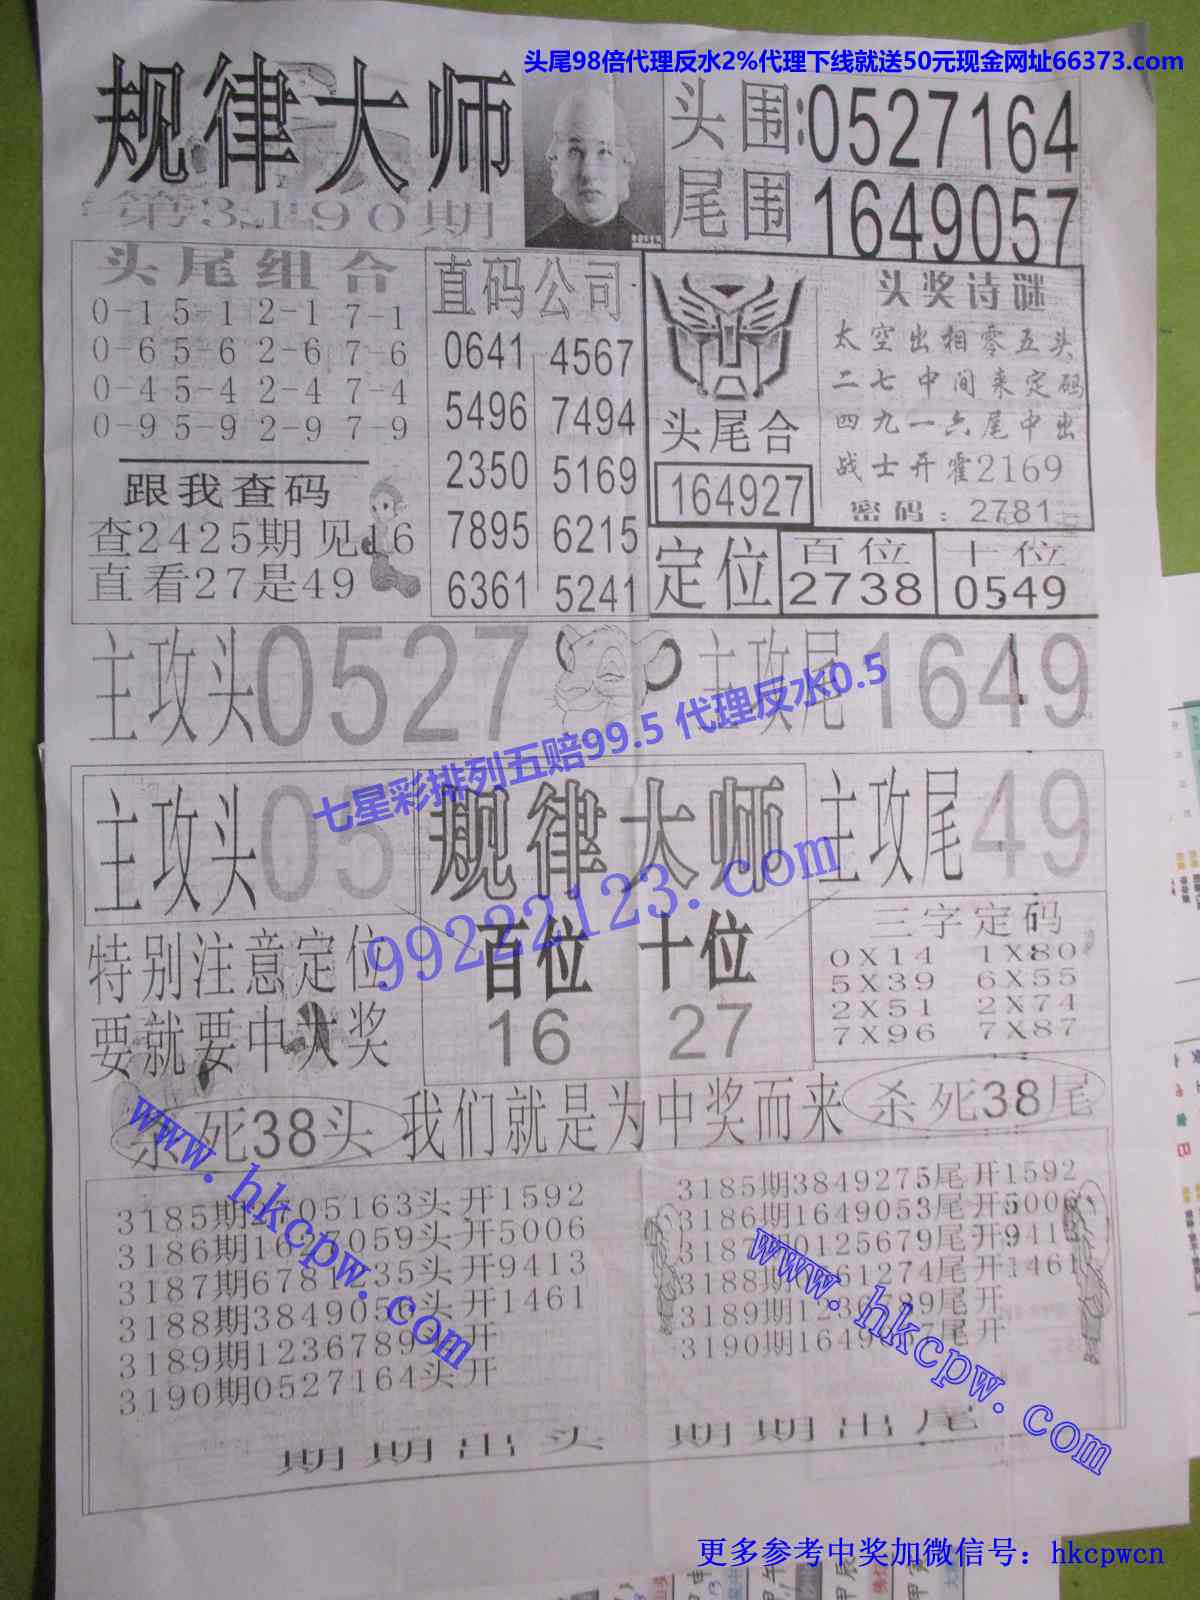 头尾98倍代理反水2%代理下线就送50元现金网址66373.com
规律大师
第3190期
头围:0527164
尾围1649057
头尾组合
0-1 5-1 2-1 7-1
0-6 5-6 2-6 7-6
0-4 5-4 2-4 7-4
0-9 5-9 2-9 7-9
跟我查码
查2425期见16
直看27是49
直码公司
0641 4567
5496 7494
2350 5169
7895 6215
6361 5241
头尾合
164927
头奖诗谜
太空出相零五头
二七中间来定码
四九一六尾中出
战士开霍2169
密码:2781
定位
百位
2738
十位
0549
主攻头0527
主攻尾1649
七星彩排列五赔99.5 代理反水0.5
主攻头05
规律大师
主攻尾49
99222123.com
特别注意定位
要就要中大奖
百位 十位
16 27
三字定码
0X14 1X80
5X39 6X55
2X51 2X74
7X96 7X87
杀死38头
我们就是为中奖而来
杀死38尾
www.hkcpw.com
3185期2705163头开1592
3186期16 7059头开5006
3187期6781235头开9413
3188期3849056头开1461
3189期1236789头开
3190期0527164头开
3185期3849275尾开1592
3186期1649053尾开5006
3187期0125679尾开941
3188期 61274尾开1461
3189期1236789尾开
3190期1649057尾开
www.hkcpw.com
期期出头 期期出尾
更多参考中奖加微信号：hkcpwcn